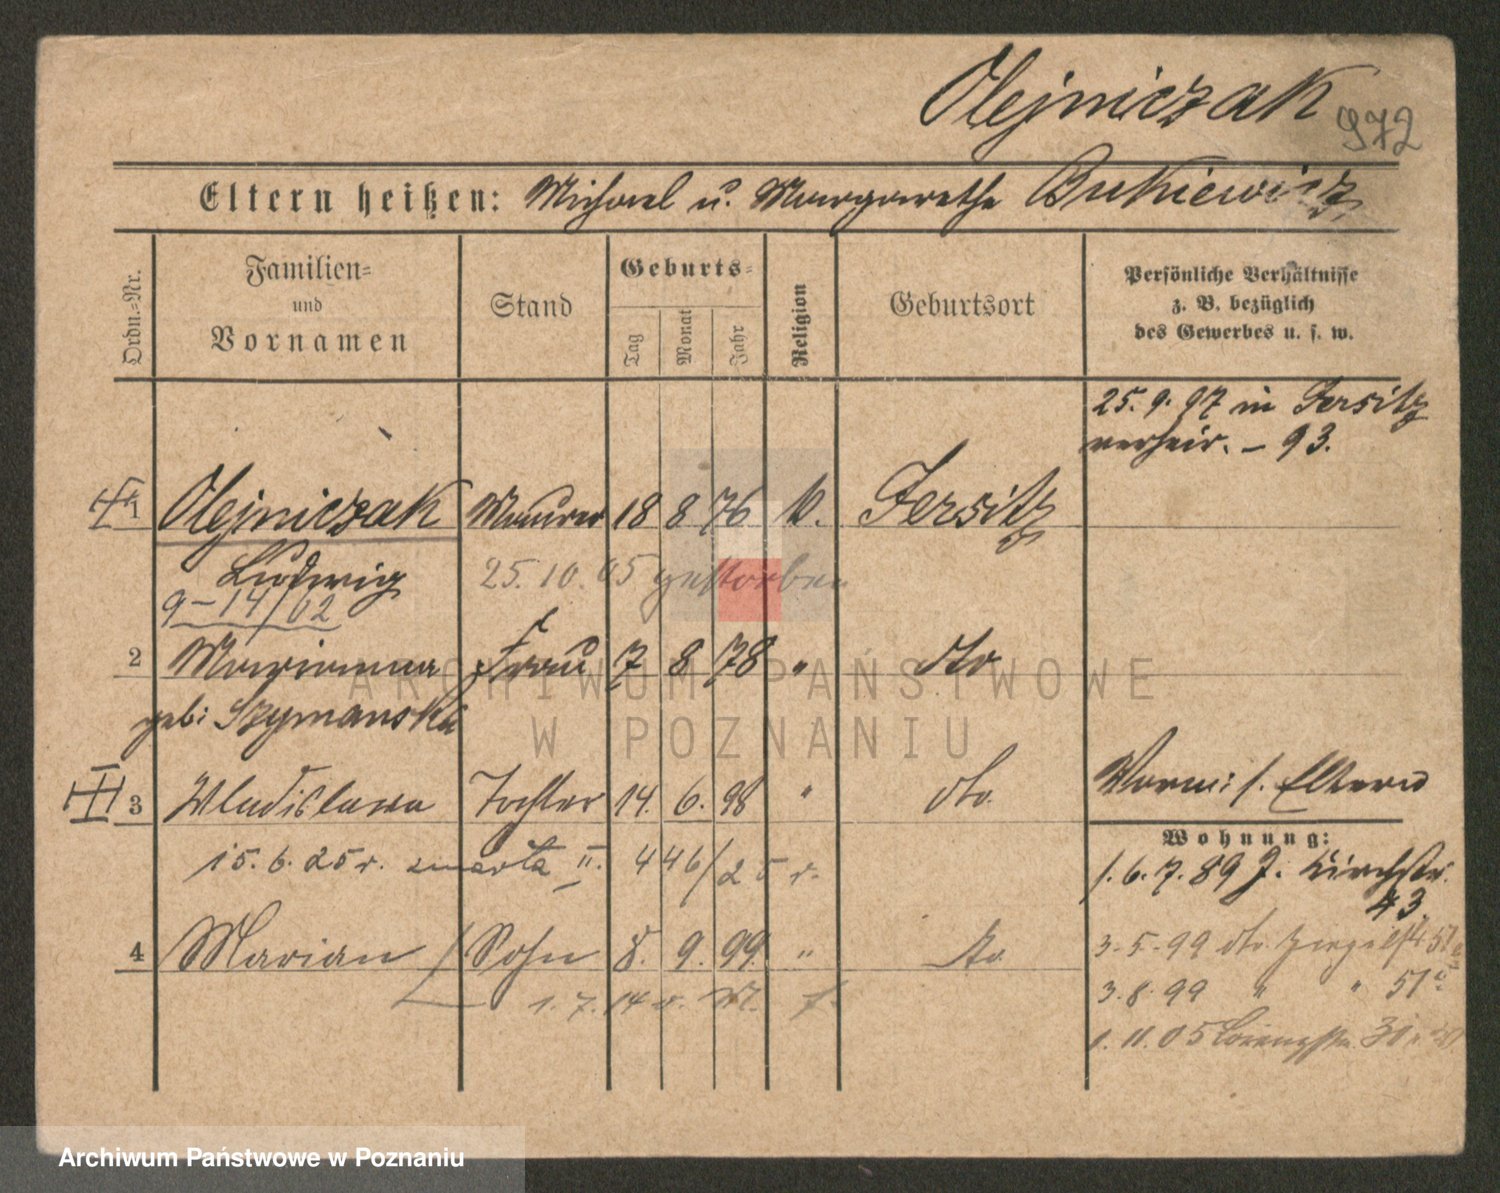 Olejniczak
972
Eltern heißen: Michael u. Margarethe Bukiewicz
Ordn.=Nr.
Familien=
und
Vornamen
Stand
Geburts=
Tag
Monat
Jahr
Religion
Geburtsort
Persönliche Verhältnisse
z. B. bezüglich
des Gewerbes u. s. w.
25. 9. 97 in Jersitz
verheir. – 93.
1 Olejniczak Maurer 18 8 76 k. Jersitz
Ludwig 25. 10. 05 gestorben
9 – 14/02
2 Marianna Frau 7 8 78 " dto
geb: Szymanska
3 Wladislawa Tochter 14. 6. 98 " dto. Vorm: s. Eltern
Wohnung:
15. 6. 25 r. zmarła II. 446/25 r.
6. 7. 89 J. Kirchstr.
43.
4 Marian Sohn 8. 9. 99. " dto
3-5-99 dto. 51
3. 8. 99 " " 51
1. 7. 14
1. 11. 05
ARCHIWUM PAŃSTWOWE
W POZNANIU
Archiwum Państwowe w Poznaniu